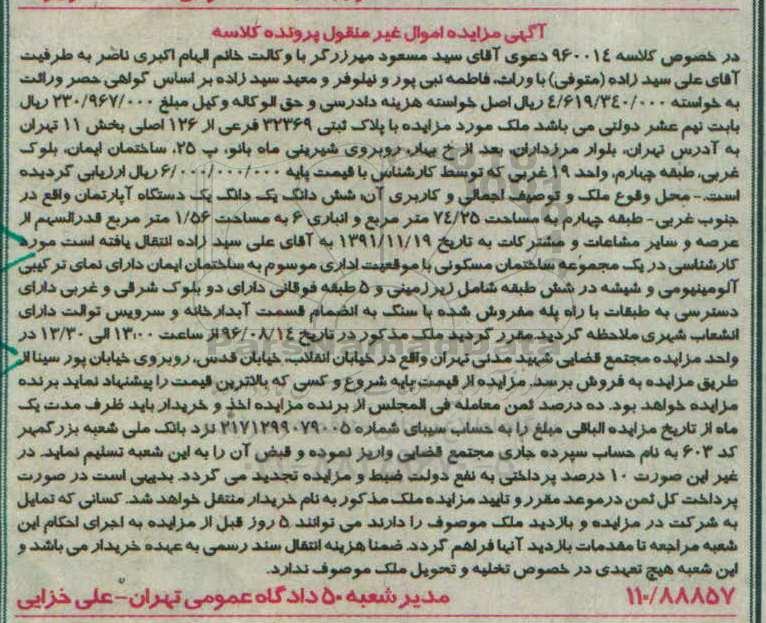 آگهی مزایده اموال غیر منقول پرونده کلاسه
در خصوص کلاسه ۹۶۰۰۱۴ دعوی آقای سید مسعود میرزرگر با وکالت خانم الهام اکبری ناصر به طرفیت
آقای علی سید زاده (متوفی) با وراث، فاطمه نبی پور و نیلوفر و معید سید زاده بر اساس گواهی حصر وراثت
به خواسته ۴/۶۱۹/۳۴۰/۰۰۰ ریال اصل خواسته هزینه دادرسی و حق الوکاله وکیل مبلغ ۲۳۰/۹۶۷/۰۰۰ ریال
بابت نیم عشر دولتی می باشد ملک مورد مزایده با پلاک ثبتی ۳۲۳۶۹ فرعی از ۱۲۶ اصلی بخش ۱۱ تهران
به آدرس تهران، بلوار مرزداران، بعد از خ بهار، روبروی شیرینی ماه بانو، پ ۲۵، ساختمان ایمان، بلوک
غربی، طبقه چهارم، واحد ۱۹ غربی که توسط کارشناس با قیمت پایه ۶/۰۰۰/۰۰۰/۰۰۰ ریال ارزیابی گردیده
است. - محل وقوع ملک و توصیف اجمالی و کاربری آن: شش دانگ یک دانگ یک دستگاه آپارتمان واقع در
جنوب غربی - طبقه چهارم به مساحت ۷۴/۲۵ متر مربع و انباری ۶ به مساحت ۱/۵۶ متر مربع قدرالسهم از
عرصه و سایر مشاعات و مشترکات به تاریخ ۱۳۹۱/۱۱/۱۹ به آقای علی سید زاده انتقال یافته است مورد
کارشناسی در یک مجموعه ساختمان مسکونی با موقعیت اداری موسوم به ساختمان ایمان دارای نمای ترکیبی
آلومینیومی و شیشه در شش طبقه شامل زیرزمینی و ۵ طبقه فوقانی دارای دو بلوک شرقی و غربی دارای
دسترسی به طبقات با راه پله مفروش شده با سنگ به انضمام قسمت آبدارخانه و سرویس توالت دارای
انشعاب شهری ملاحظه گردید.مقرر گردید ملک مذکور در تاریخ ۹۶/۰۸/۱۴ از ساعت ۱۳:۰۰ الی ۱۳/۳۰ در
واحد مزایده مجتمع قضایی شهید مدنی تهران واقع در خیابان انقلاب، خیابان قدس، روبروی خیابان پور سینا از
طریق مزایده به فروش برسد. مزایده از قیمت پایه شروع و کسی که بالاترین قیمت را پیشنهاد نماید برنده
مزایده خواهد بود. ده درصد ثمن معامله فی المجلس از برنده مزایده اخذ و خریدار باید ظرف مدت یک
ماه از تاریخ مزایده الباقی مبلغ را به حساب سیبای شماره ۲۱۷۱۲۹۹۰۷۹۰۰۵ نزد بانک ملی شعبه بزرگمهر
کد ۶۰۳ به نام حساب سپرده جاری مجتمع قضایی واریز نموده و قبض آن را به این شعبه تسلیم نماید. در
غیر این صورت ۱۰ درصد پرداختی به نفع دولت ضبط و مزایده تجدید می گردد. بدیهی است در صورت
پرداخت کل ثمن درموعد مقرر و تایید مزایده ملک مذکور به نام خریدار منتقل خواهد شد. کسانی که تمایل
به شرکت در مزایده و بازدید ملک موصوف را دارند می توانند ۵ روز قبل از مزایده به اجرای احکام این
شعبه مراجعه تا مقدمات بازدید آنها فراهم گردد. ضمنا هزینه انتقال سند رسمی به عهده خریدار می باشد و
این شعبه هیچ تعهدی در خصوص تخلیه و تحویل ملک موصوف ندارد.
۱۱۰/۸۸۸۵۷ مدیر شعبه ۵۰ دادگاه عمومی تهران - علی خزایی